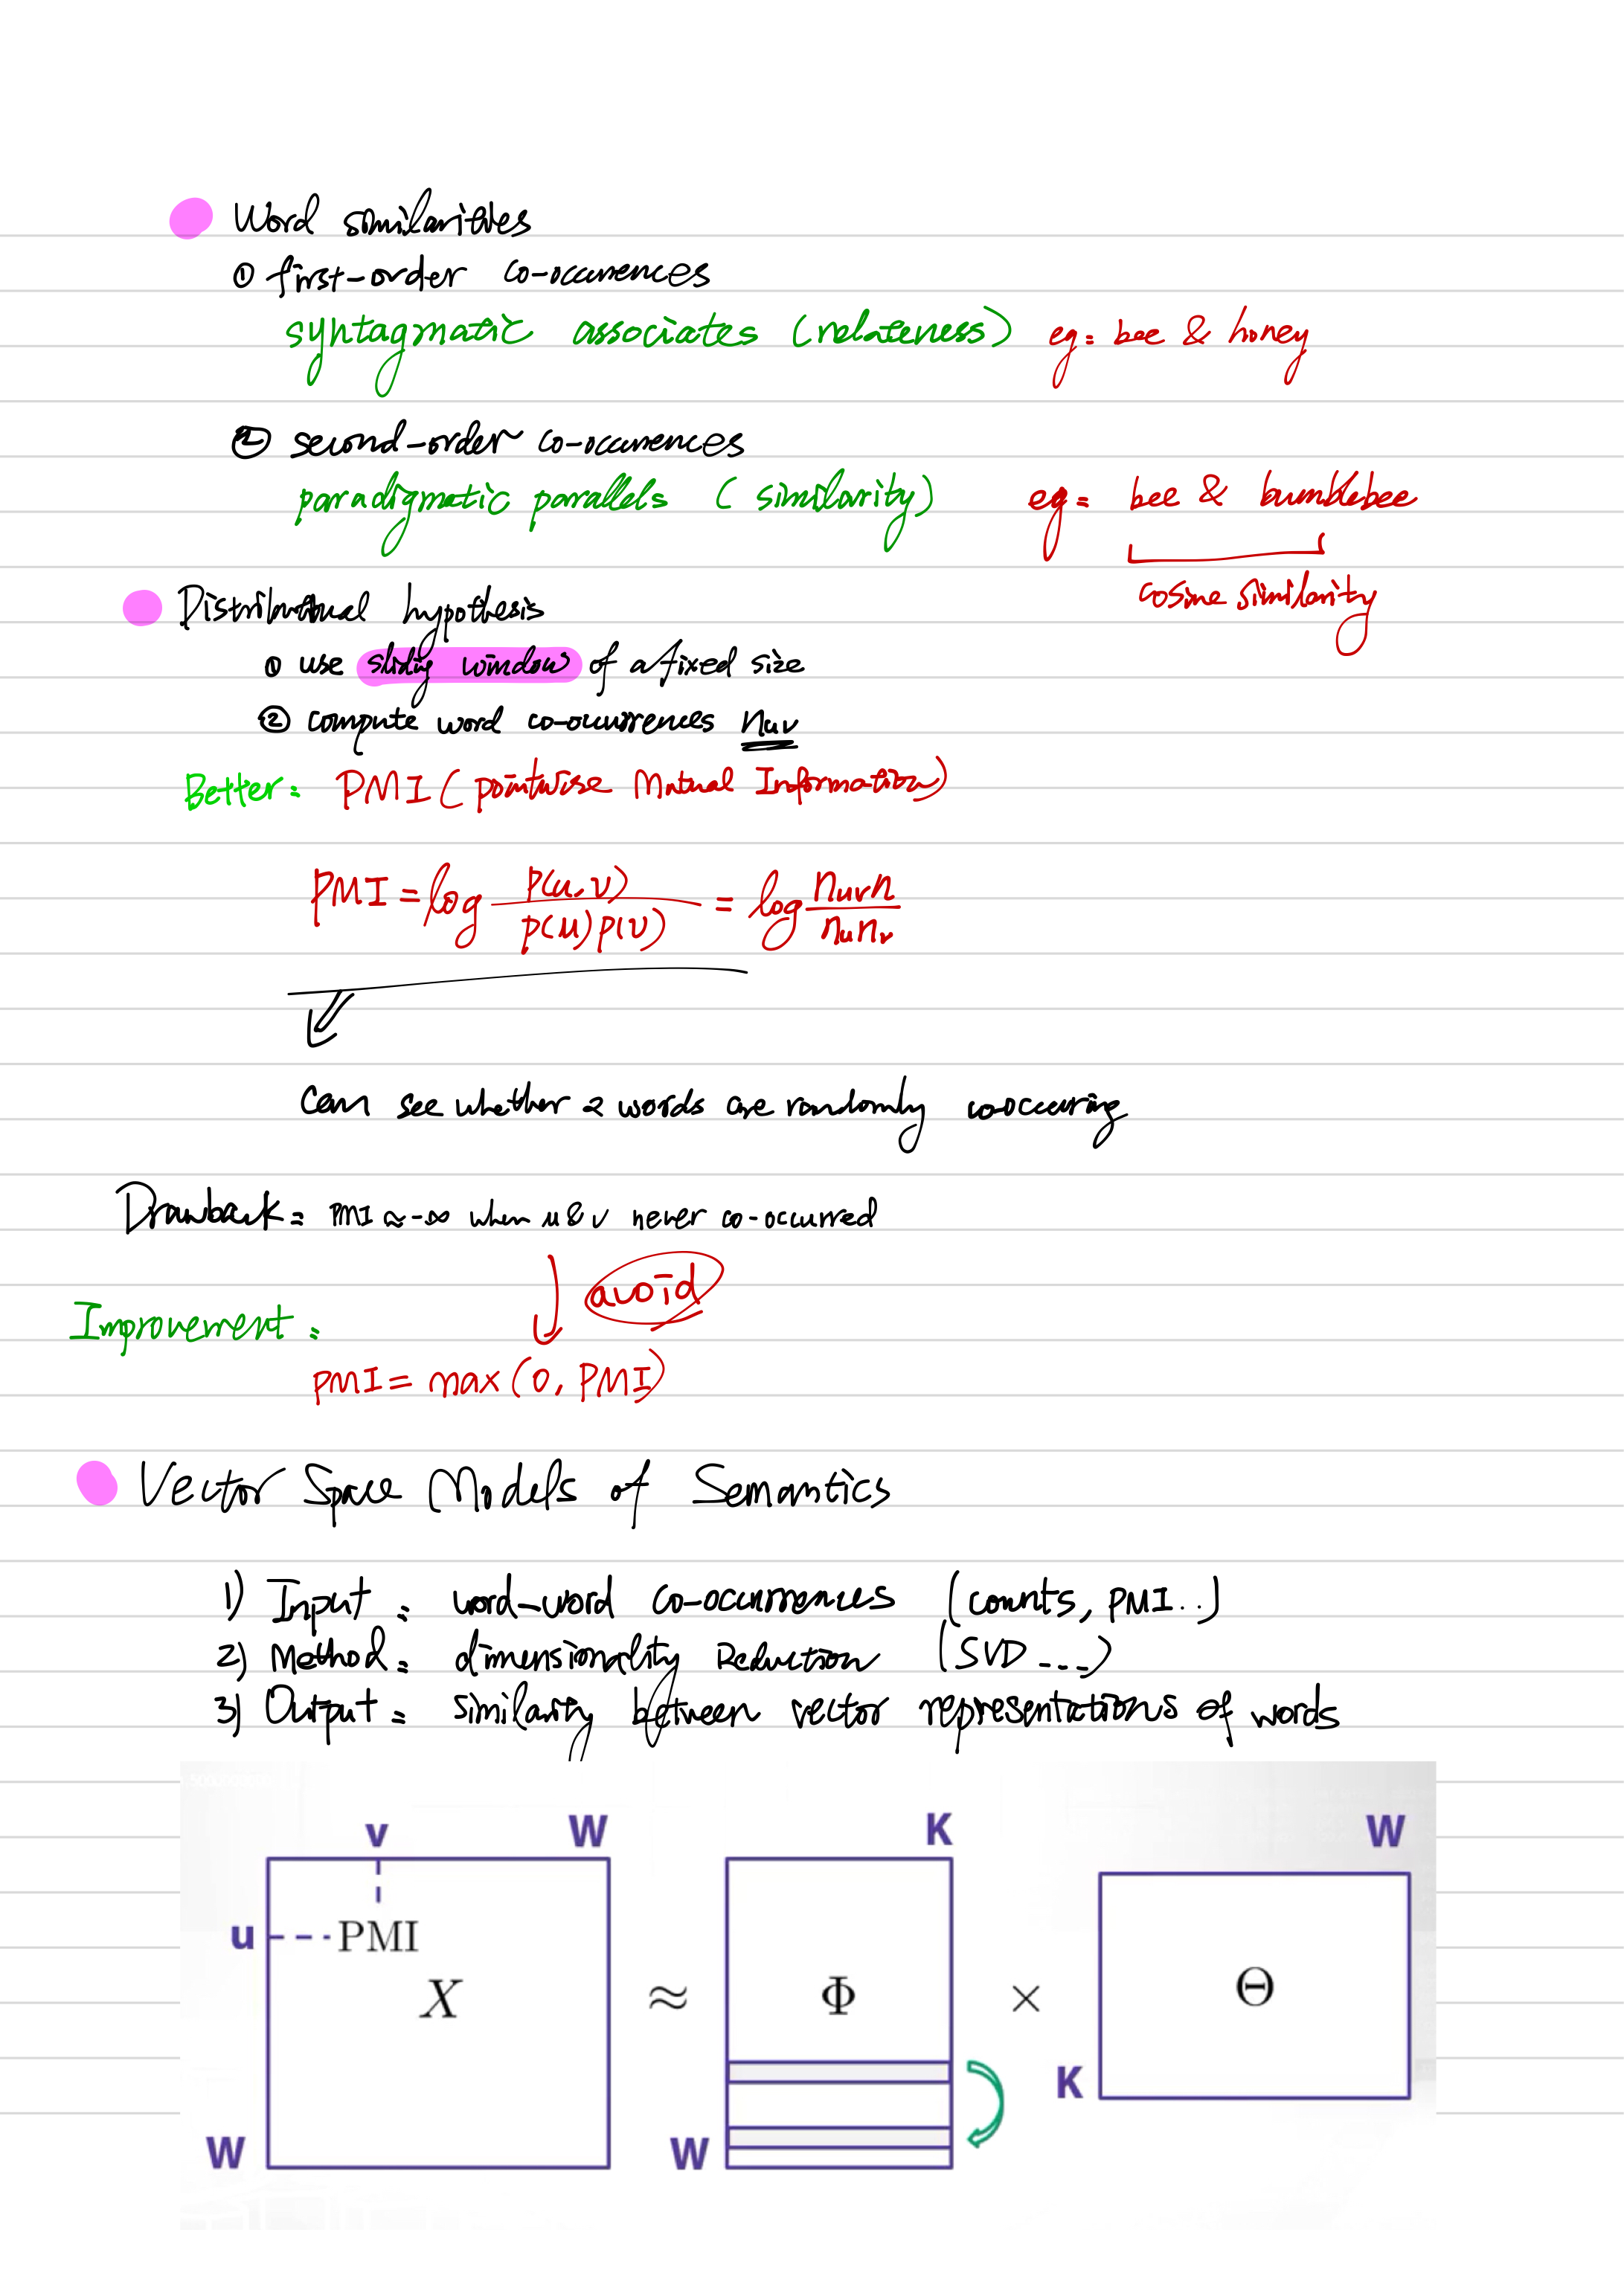 Word similarities
① first-order co-occurences
syntagmatic associates (relateness) eg: bee & honey
② second-order co-occurences
paradigmatic parallels (similarity) eg: bee & bumblebee
cosine similarity
Distributional hypothesis
① use sliding window of a fixed size
② compute word co-occurrences nuv
Better: PMI (pointwise Mutual Information)
PMI = log p(u,v) / p(u)p(v) = log nuv n / nu nv
Can see whether 2 words are randomly co-occuring
Drawback: PMI ≈ -∞ when u & v never co-occurred
avoid
Improvement:
PMI = max(0, PMI)
Vector Space Models of Semantics
1) Input: word-word co-occurrences (counts, PMI..)
2) Method: dimensionality Reduction (SVD ...)
3) Output: similarity between vector representations of words
v W K W
u PMI
X ≈ Φ × Θ
K
W W